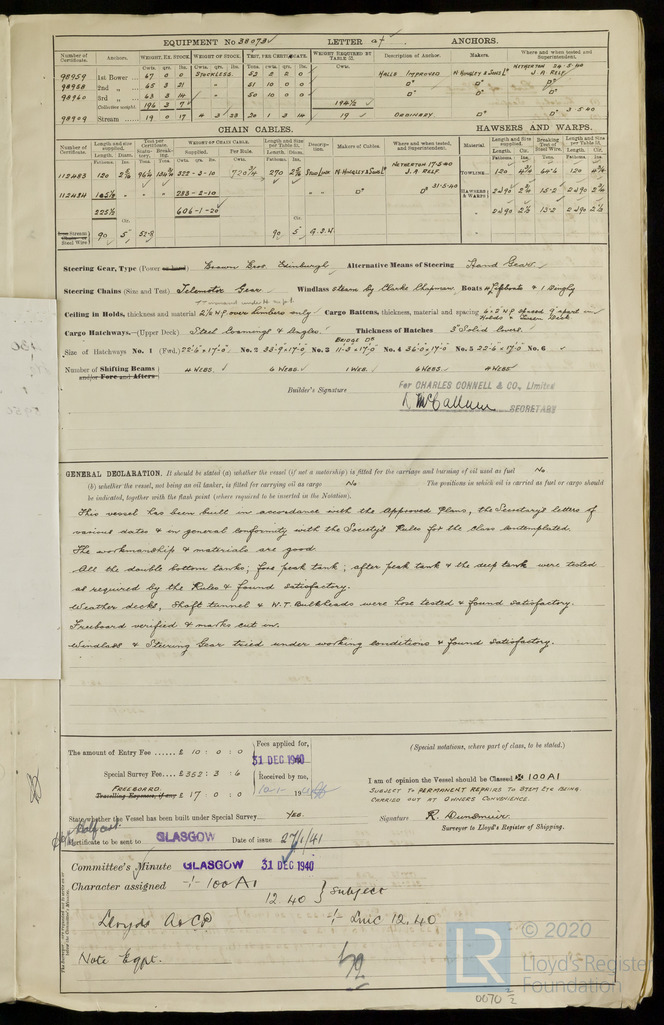 EQUIPMENT No 38073 LETTER at ANCHORS.
Number of Certificate. Anchors. WEIGHT, EX. STOCK. WEIGHT OF STOCK. TEST, PER CERTIFICATE. WEIGHT REQUIRED BY TABLE 53. Description of Anchor. Makers. Where and when tested and Superintendent.
Cwts. qrs. lbs. Cwts. qrs. lbs. Tons. cwts. qrs. lbs. Cwts.
98959 1st Bower 67 0 0 STOCKLESS. 52 2 2 0 HALLS IMPROVED N HINGLEY & SONS Ld NETHERTON 24-5-40 J. A. RELF
98958 2nd " 65 3 21 " 51 10 0 0 Do Do Do
98960 3rd " 63 3 14 " 50 10 0 0 Do Do Do
Collective weight 196 3 7 194½
98909 Stream 19 0 17 4 3 23 20 1 3 14 19 ORDINARY Do Do 3-5-40
CHAIN CABLES. HAWSERS AND WARPS.
Number of Certificate. Length and size supplied. Test per Certificate. WEIGHT OF CHAIN CABLE. Length and size per Table 53. Description. Makers of Cables. Where and when tested and Superintendent. Material. Length and Size supplied. Breaking Test of Steel Wire. Length and Size per Table 53.
112483 120 222-3-10 720¾ 270 STUD LINK N. HINGLEY & SONS Ld NETHERTON 17-5-40 J. A. RELF TOWLINE 120 64.6 120
112484 105½ 283-2-10 " " Do Do 31-5-40 HAWSERS & WARPS 2 @ 90 15.2 2 @ 90
225½ 606-1-20 " 2 @ 90 13.2 2 @ 90 2½
Iron Stream Chain or Steel Wire 90 5 90 5 G.S.W.
Steering Gear, Type (Power or hand) Brown Bros. Edinburgh Alternative Means of Steering Hand Gear.
Steering Chains (Size and Test) Telemotor Gear. Windlass steam by Clarke Chapman. Boats 4 Lifeboats & 1 Dinghy
Ceiling in Holds, thickness and material 2½ W.P. over limbers only Cargo Battens, thickness, material and spacing 6 x 2 W.P. spaced 9" apart in Holds & Tween Deck
Cargo Hatchways.—(Upper Deck) Steel Coamings & Angles. Thickness of Hatches 3" Solid covers.
Size of Hatchways No. 1 (Fwd.) 22.6 x 17.0 No. 2 33.9 x 17.0 No. 3 BRIDGE DK 11.3 x 17.0 No. 4 36.0 x 17.0 No. 5 22.6 x 17.0 No. 6
Number of Shifting Beams and/or Fore and Afters 4 WEBS. 6 WEBS 1 WEB. 6 WEBS. 4 WEBS
Builder's Signature For CHARLES CONNELL & CO., Limited
R McCallum SECRETARY
GENERAL DECLARATION. It should be stated (a) whether the vessel (if not a motorship) is fitted for the carriage and burning of oil used as fuel No
(b) whether the vessel, not being an oil tanker, is fitted for carrying oil as cargo No. The positions in which oil is carried as fuel or cargo should
be indicated, together with the flash point (where required to be inserted in the Notation).
This vessel has been built in accordance with the Approved Plans, the Secretary's letters of
various dates & in general conformity with the Society's Rules for the class contemplated.
The workmanship & materials are good.
All the double bottom tanks; fore peak tank; after peak tank & the deep tank were tested
as required by the Rules & found satisfactory.
Weather decks, Shaft tunnel & W.T. Bulkheads were hose tested & found satisfactory.
Freeboard verified & marks cut in.
Windlass & Steering Gear tried under working conditions & found satisfactory.
The amount of Entry Fee £ 10 : 0 : 0 Fees applied for, 31 DEC 1940
Special Survey Fee £352 : 3 : 6 Received by me,
FREEBOARD Travelling Expenses, if any £ 17 : 0 : 0
(Special notations, where part of class, to be stated.)
I am of opinion the Vessel should be Classed ✠ 100A1
SUBJECT TO PERMANENT REPAIRS TO STEM ETC BEING
CARRIED OUT AT OWNERS CONVENIENCE.
State whether the Vessel has been built under Special Survey Yes.
Signature R. Dunsmuir.
Surveyor to Lloyd's Register of Shipping.
Certificate to be sent to GLASGOW Date of issue 27/1/41
Committee's Minute GLASGOW 31 DEC 1940
Character assigned + 100A1 12.40 } Subject
Lloyds A & CP + LMC 12.40
Note Eqpt.
LR © 2020
Lloyd's Register
Foundation
0070 ½